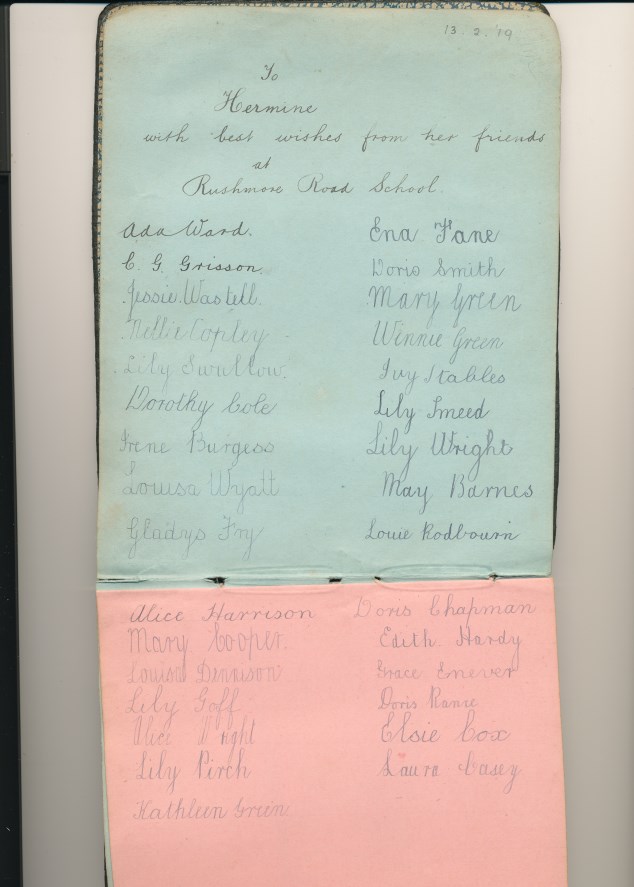 13. 2. '19
To
Hermine
with best wishes from her friends
at
Rushmore Road School.
Ada Ward.
C. G. Grisson.
Jessie Wastell.
Nellie Copley
Lily Swallow.
Dorothy Cole
Irene Burgess
Louisa Wyatt
Gladys Fry
Ena Fane
Doris Smith
Mary Green
Winnie Green
Ivy Stables
Lily Smeed
Lily Wright
May Barnes
Louie Rodbourn
Alice Harrison
Mary Cooper.
Louisa Dennison
Lily Goff
Alice Wright
Lily Pirch
Kathleen Green
Doris Chapman
Edith Hardy
Grace Enever
Doris
Elsie Cox
Laura Casey